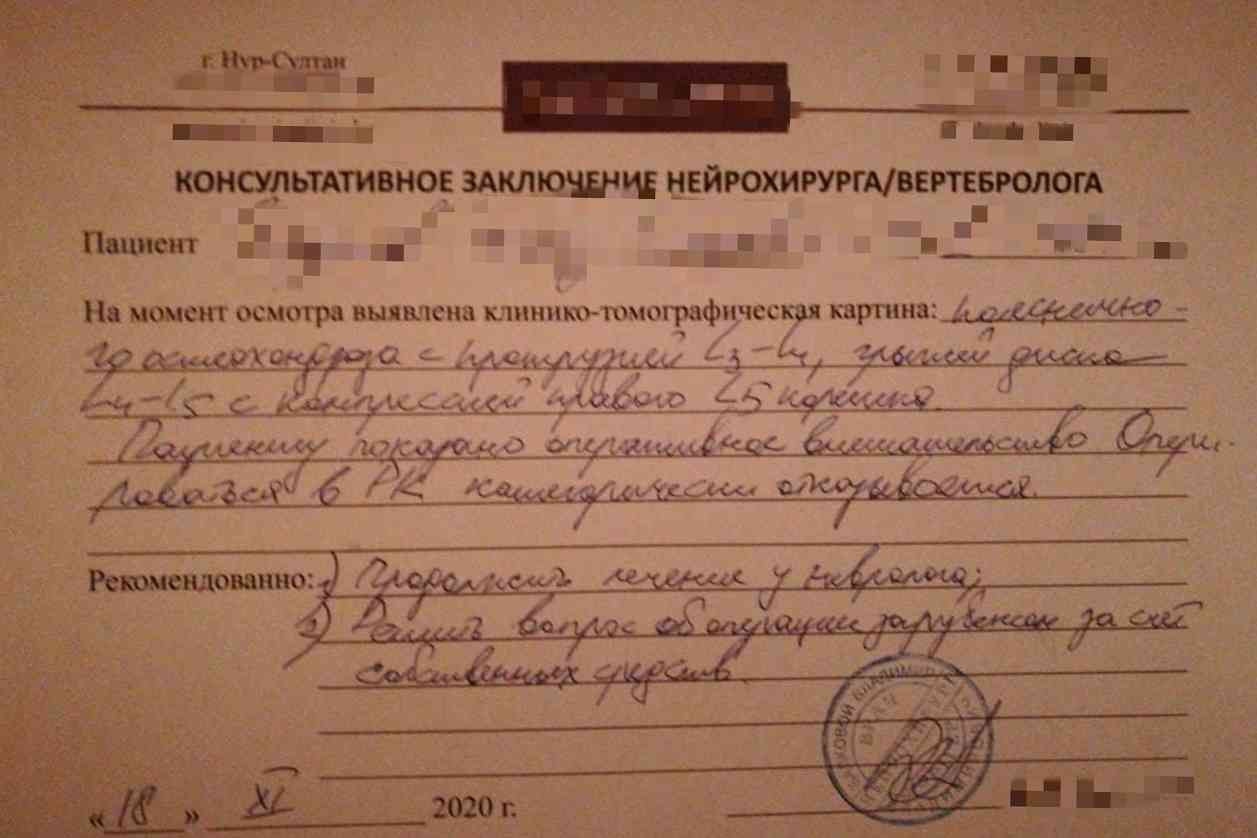 г. Нур-Султан
КОНСУЛЬТАТИВНОЕ ЗАКЛЮЧЕНИЕ НЕЙРОХИРУРГА/ВЕРТЕБРОЛОГА
Пациент
На момент осмотра выявлена клинико-томографическая картина: пояснично-
го остеохондроза с протрузией L3-L4, грыжей диска
L4-L5 с компрессией правого L5 корешка.
Пациенту показано оперативное вмешательство Опери-
роваться в РК категорически отказывается.
Рекомендованно: 1) Продолжить лечение у невролога;
2) Решить вопрос об операции зарубежом за счёт
собственных средств.
ВРАЧ
«18» XI 2020 г.